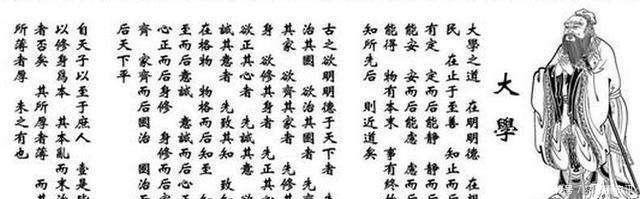 大學
大學之道 在明明德 在
民 在止于至善 知止而后
有定 定而后能靜 靜而后
能安 安而后能慮 慮而后
能得 物有本末 事有終
知所先后 則近道矣
古之欲明明德于天下者
治其國 欲治其國者 先
其家 欲齊其家者 先修其
身 欲修其身者 先正其
欲正其心者 先誠其意 欲
誠其意者 先致其知 致
在格物 物格而后知至
至而后意誠 意誠而后心正
心正而后身修 身修而后
齊 家齊而后國治 國治而
后天下平
自天子以至于庶人 壹是皆
以修身爲本 其本亂而末治
者否矣 其所厚者薄 而其
所薄者厚 未之有也